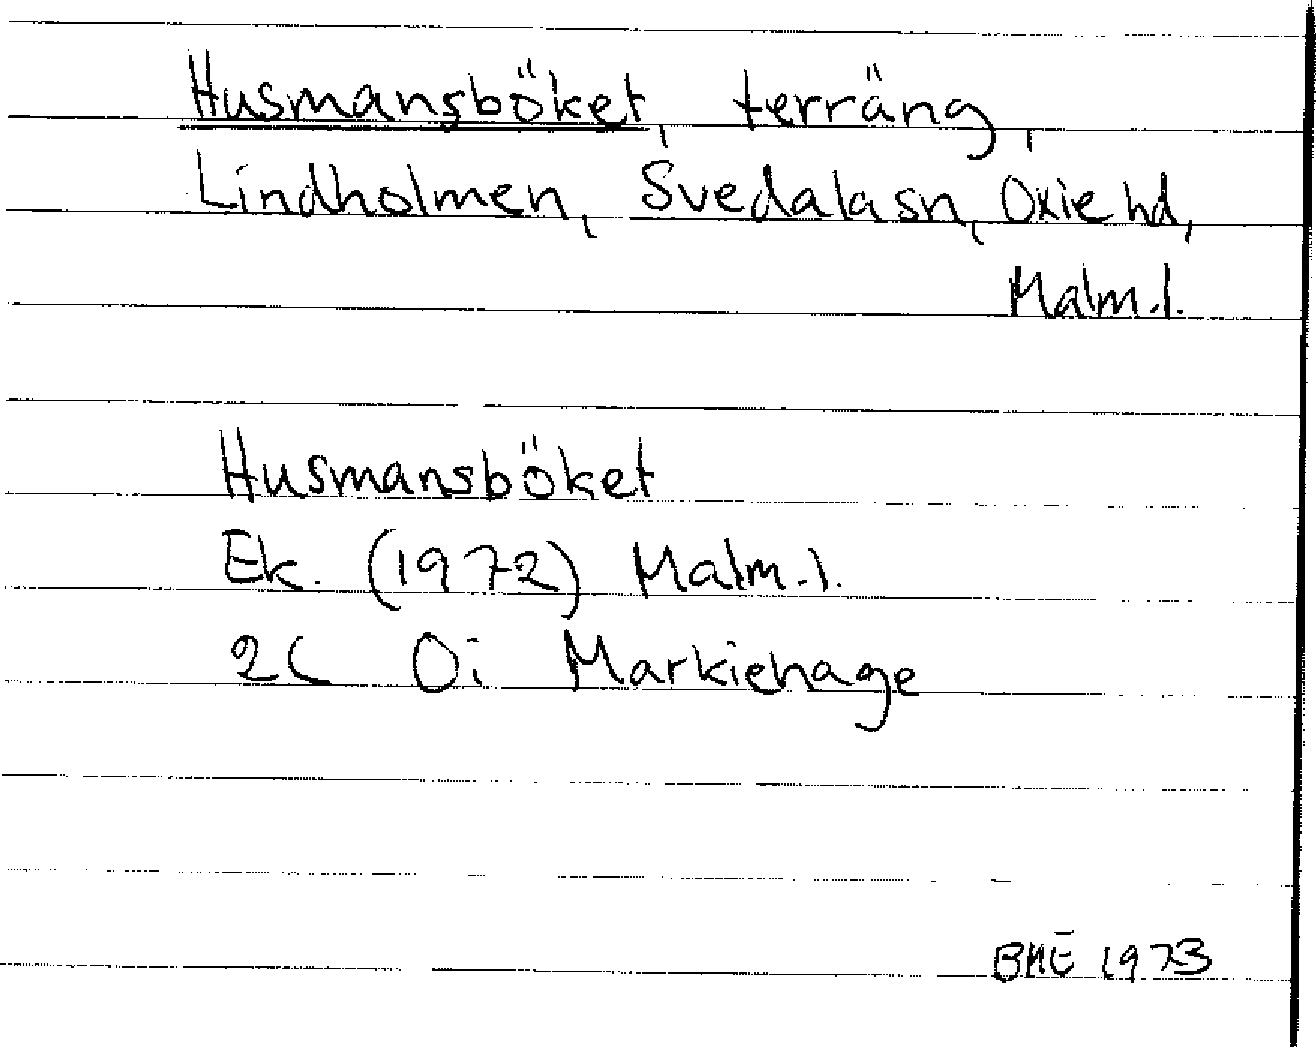 Husmansböket, terräng,
Lindholmen, Svedala sn, Oxie hd,
Malm.l.
Husmansböket
Ek. (1972) Malm.l.
2C Oi Markiehage
BME 1973